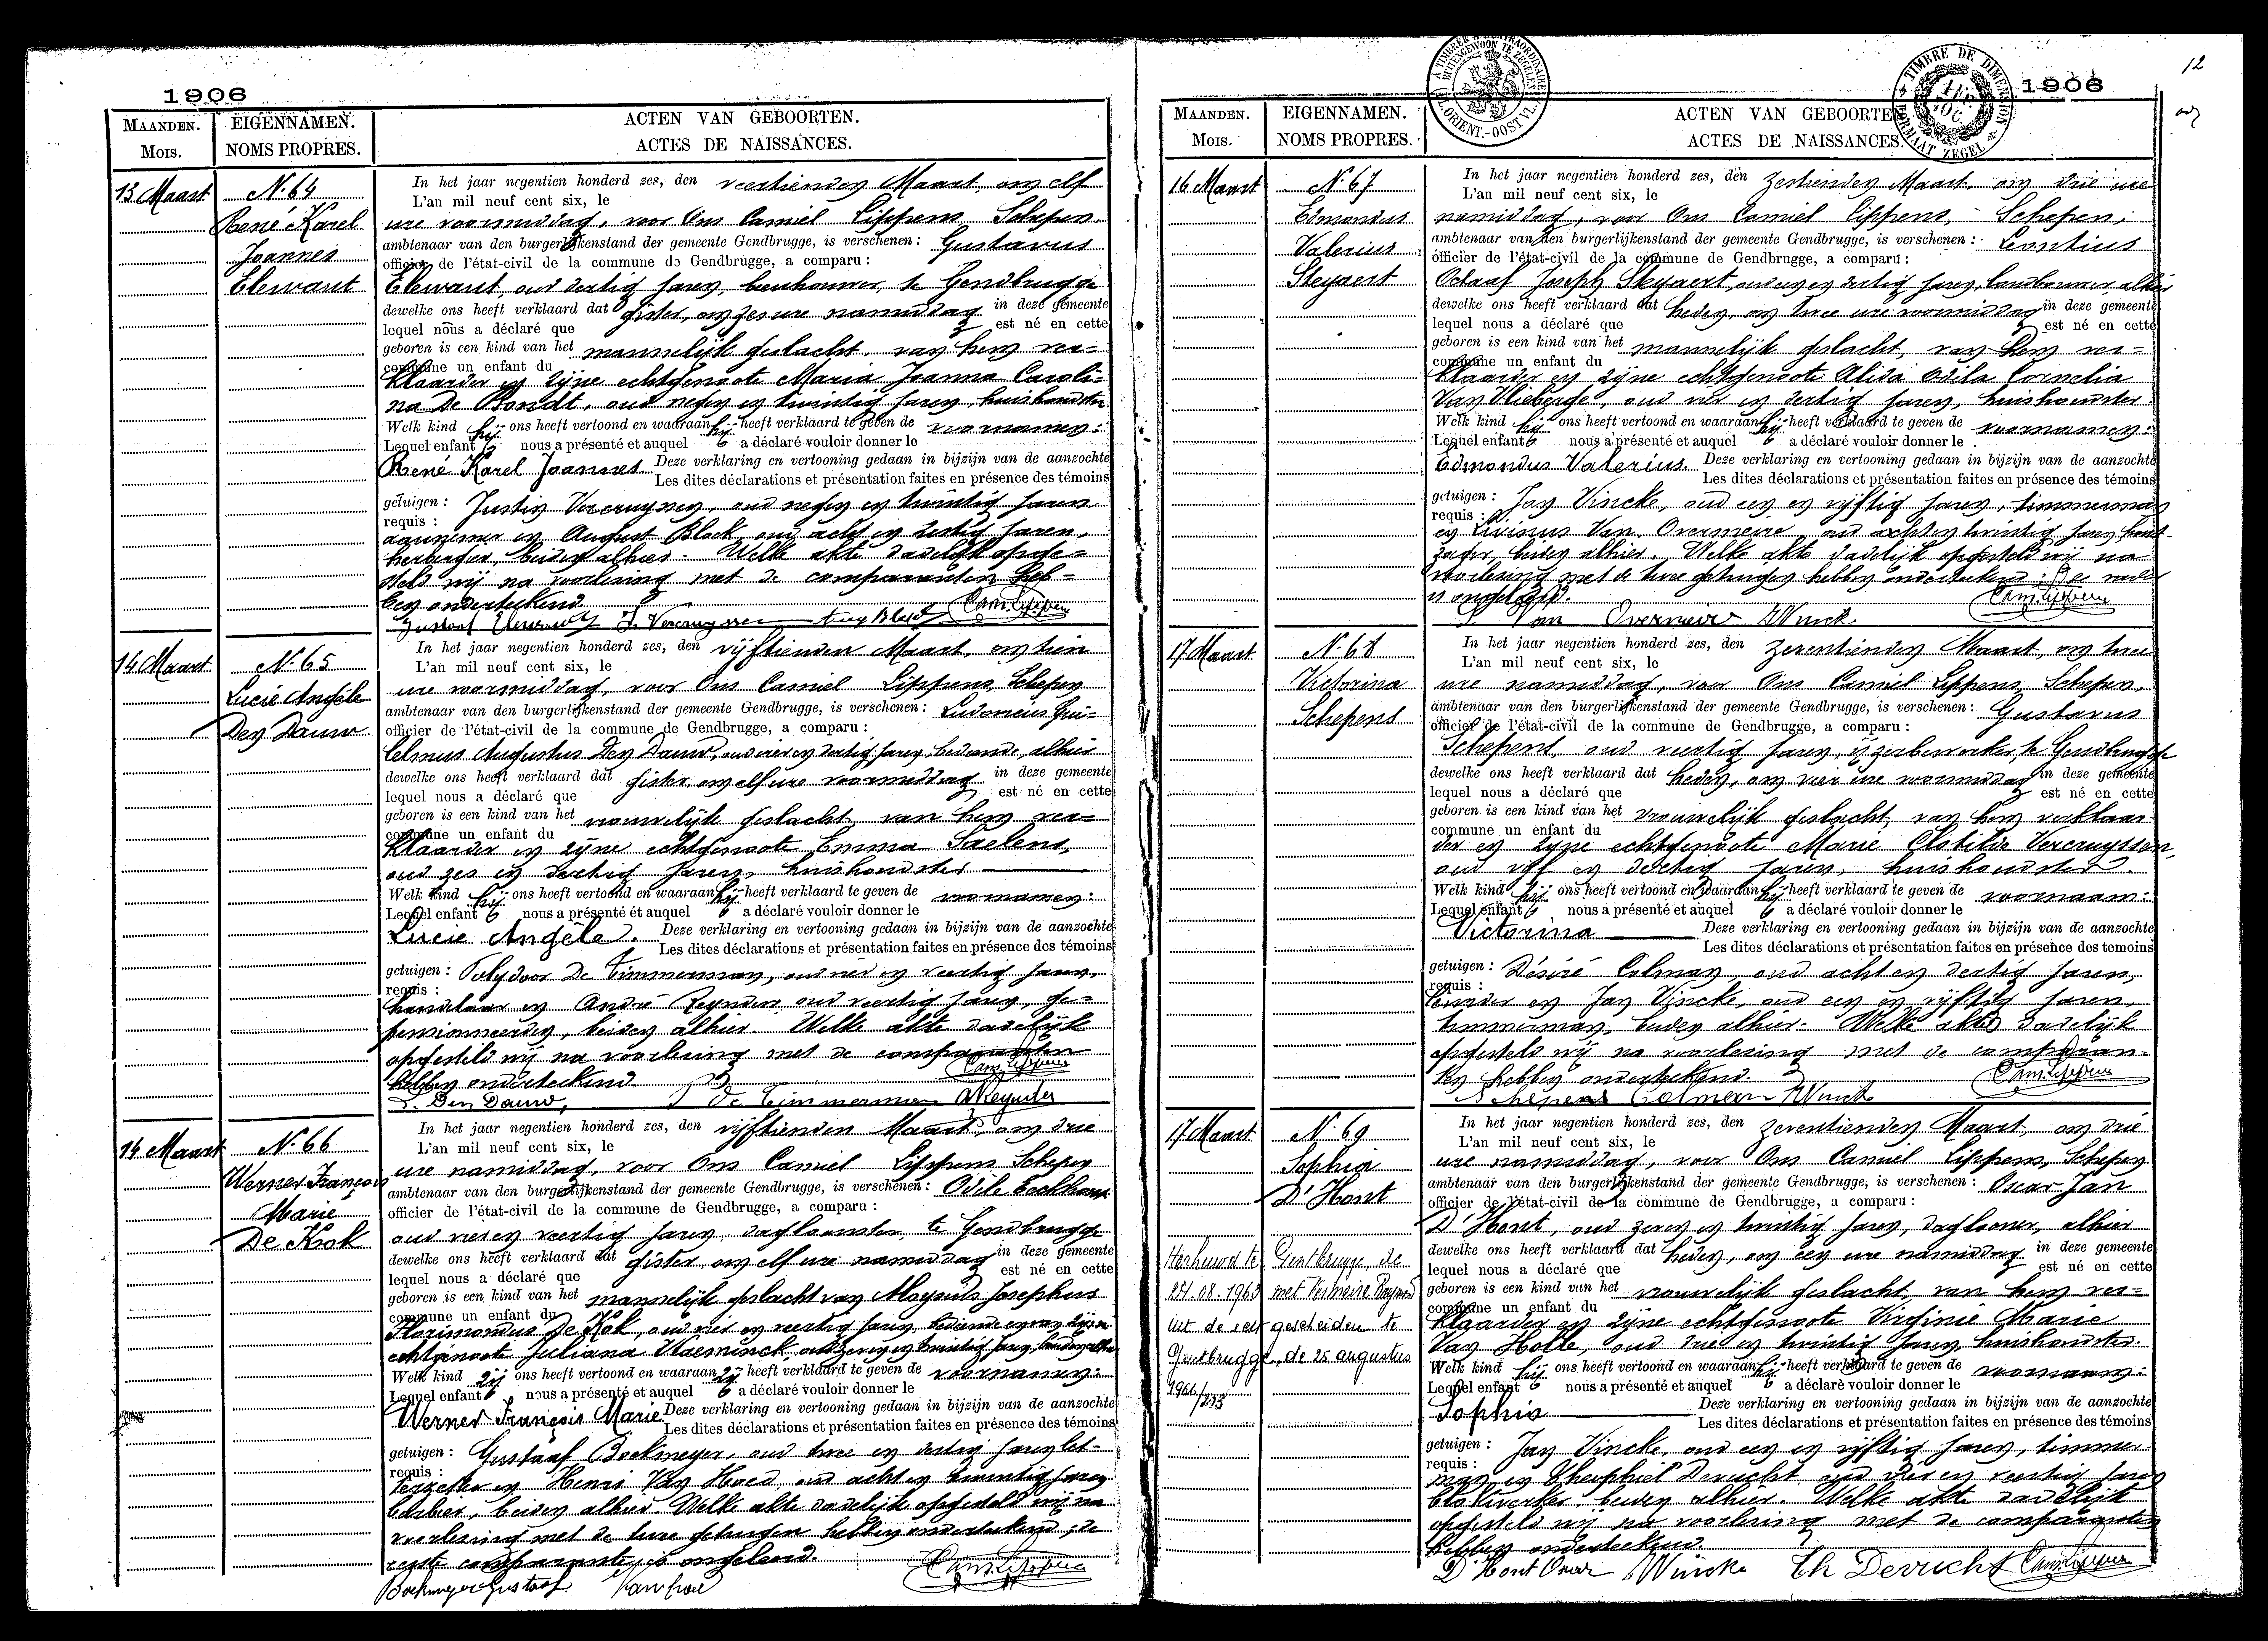 1906
MAANDEN.
MOIS.
EIGENNAMEN.
NOMS PROPRES.
ACTEN VAN GEBOORTEN.
ACTES DE NAISSANCES.
13 Maart
N. 64
René Karel
Joannes
Elewaut
In het jaar negentien honderd zes, den veertienden Maart, om elf
L'an mil neuf cent six, le
ure voormiddag, voor Ons Camiel Lippens, Schepen,
ambtenaar van den burgerlijkenstand der gemeente Gendbrugge, is verschenen: Gustavus
officier de l'état-civil de la commune de Gendbrugge, a comparu:
Elewaut, oud dertig jaren, beenhouwer, te Gendbrugge
dewelke ons heeft verklaard dat gister, om zes ure namiddag in deze gemeente
lequel nous a déclaré que est né en cette
geboren is een kind van het mannelijk geslacht, van hem ver-
commune un enfant du
klaarder en zijne echtgenoote Maria Joanna Caroli-
na De Bondt, oud negen en twintig jaren, huishoudster
Welk kind hij ons heeft vertoond en waaraan hij heeft verklaard te geven de voornamen:
Lequel enfant nous a présenté et auquel a déclaré vouloir donner le
René Karel Joannes Deze verklaring en vertooning gedaan in bijzijn van de aanzochte
Les dites déclarations et présentation faites en présence des témoins
getuigen: Justin Vercruyssen, oud negen en twintig jaren
requis:
aannemer en August Block, oud acht en dertig jaren,
herbergier, beiden alhier. Welke akte dadelijk opge-
steld wij na voorlezing met de comparanten heb-
ben onderteekend.
14 Maart
N. 65
Lucie Angèle
Den Dauw
In het jaar negentien honderd zes, den vijftienden Maart, om tien
L'an mil neuf cent six, le
ure voormiddag, voor Ons Camiel Lippens, Schepen
ambtenaar van den burgerlijkenstand der gemeente Gendbrugge, is verschenen: Ludovicus Gui-
officier de l'état-civil de la commune de Gendbrugge, a comparu:
lelmus Augustus Den Dauw, oud vier en dertig jaren, bediende, alhier
dewelke ons heeft verklaard dat gister om elf ure voormiddag in deze gemeente
lequel nous a déclaré que est né en cette
geboren is een kind van het vrouwelijk geslacht, van hem ver-
commune un enfant du
klaarder en zijne echtgenoote Emma Saelens,
oud zes en dertig jaren, huishoudster
Welk kind hij ons heeft vertoond en waaraan hij heeft verklaard te geven de voornamen:
Lequel enfant nous a présenté et auquel a déclaré vouloir donner le
Lucie Angèle. Deze verklaring en vertooning gedaan in bijzijn van de aanzochte
Les dites déclarations et présentation faites en présence des témoins
getuigen: Polydoor De Timmerman, oud vier en veertig jaren,
requis:
handelaar en André Reynders oud veertig jaren, ge-
pensionneerden, beiden alhier. Welke akte dadelijk
opgesteld wij na voorlezing met de comparanten
hebben onderteekend.
L. Den Dauw, P De Timmerman AReynders
14 Maart
N. 66
Werner François
Marie
De Kok
In het jaar negentien honderd zes, den vijftienden Maart, om drie
L'an mil neuf cent six, le
ure namiddag, voor Ons Camiel Lippens, Schepen
ambtenaar van den burgerlijkenstand der gemeente Gendbrugge, is verschenen: Odile
officier de l'état-civil de la commune de Gendbrugge, a comparu:
oud vier en veertig jaren, dagloonster, te Gendbrugge
dewelke ons heeft verklaard dat gister, om elf ure namiddag in deze gemeente
lequel nous a déclaré que est né en cette
geboren is een kind van het mannelijk geslacht van Aloysius Josephus
commune un enfant du
Florimondus De Kok, oud vier en veertig jaren, bediende en van zijne
echtgenoote Juliana Vlaeminck, oud zeven en twintig jaren,
Welk kind zij ons heeft vertoond en waaraan zij heeft verklaard te geven de voornamen:
Lequel enfant nous a présenté et auquel a déclaré vouloir donner le
Werner François Marie Deze verklaring en vertooning gedaan in bijzijn van de aanzochte
Les dites déclarations et présentation faites en présence des témoins
getuigen: Gustaaf Boekmeyer, oud twee en dertig jaren, let-
requis:
terzetter en Henri Van Hoed oud acht en twintig jaren
barbier, beiden alhier. Welke akte dadelijk opgesteld wij na
voorlezing met de twee getuigen hebben onderteekend; de
eerste comparante is ongeleerd.
Boekmeyer Gustaaf
1906
12
MAANDEN.
MOIS.
EIGENNAMEN.
NOMS PROPRES.
ACTEN VAN GEBOORTEN.
ACTES DE NAISSANCES.
TIMBRE DE DIMENSION
FORMAAT ZEGEL
16 Maart
N. 67
Edmondus
Valerius
Steyaert
In het jaar negentien honderd zes, den zestienden Maart, om drie ure
L'an mil neuf cent six, le
namiddag, voor Ons Camiel Lippens, Schepen,
ambtenaar van den burgerlijkenstand der gemeente Gendbrugge, is verschenen: Leontius
officier de l'état-civil de la commune de Gendbrugge, a comparu:
Octaaf Joseph Steyaert, oud en dertig jaren, landbouwer, alhier
dewelke ons heeft verklaard dat heden, om twee ure voormiddag in deze gemeente
lequel nous a déclaré que est né en cette
geboren is een kind van het mannelijk geslacht, van hem ver-
commune un enfant du
klaarder en zijne echtgenoote Alida Odila Cornelia
Van Vlieberge, oud vier en dertig jaren, huishoudster.
Welk kind hij ons heeft vertoond en waaraan hij heeft verklaard te geven de voornamen:
Lequel enfant nous a présenté et auquel a déclaré vouloir donner le
Edmondus Valerius. Deze verklaring en vertooning gedaan in bijzijn van de aanzochte
Les dites déclarations et présentation faites en présence des témoins
getuigen: Jan Vincke, oud een en vijftig jaren, timmerman
requis:
en Livinus Van Overmeire, oud acht en twintig jaren, hout-
zager, beiden alhier. Welke akte dadelijk opgesteld wij na
voorlezing met de twee getuigen hebben onderteekend;
is ongeleerd.
Van Overmeire JVinck
17 Maart
N. 68
Victorina
Schepens
In het jaar negentien honderd zes, den zeventienden Maart, om twee
L'an mil neuf cent six, le
ure namiddag, voor Ons Camiel Lippens, Schepen,
ambtenaar van den burgerlijkenstand der gemeente Gendbrugge, is verschenen: Gustavus
officier de l'état-civil de la commune de Gendbrugge, a comparu:
Schepens, oud veertig jaren, ijzerbewerker, te Gendbrugge
dewelke ons heeft verklaard dat heden, om vier ure voormiddag in deze gemeente
lequel nous a déclaré que est né en cette
geboren is een kind van het vrouwelijk geslacht, van hem verklaar-
commune un enfant du
der en zijne echtgenoote Marie Clotilde Vercruyssen,
oud vijf en dertig jaren, huishoudster.
Welk kind hij ons heeft vertoond en waaraan hij heeft verklaard te geven de voornaam:
Lequel enfant nous a présenté et auquel a déclaré vouloir donner le
Victorina Deze verklaring en vertooning gedaan in bijzijn van de aanzochte
Les dites déclarations et présentation faites en présence des temoins
getuigen: Désiré Colman, oud acht en dertig jaren,
requis:
en Jan Vincke, oud een en vijftig jaren,
timmerman, beiden alhier. Welke akte dadelijk
opgesteld wij na voorlezing met de comparan-
ten hebben onderteekend.
Schepens Colman JVinck
17 Maart
N. 69
Sophia
D'Hont
In het jaar negentien honderd zes, den zeventienden Maart, om drie
L'an mil neuf cent six, le
ure namiddag, voor Ons Camiel Lippens, Schepen
ambtenaar van den burgerlijkenstand der gemeente Gendbrugge, is verschenen: Oscar Jan
officier de l'état-civil de la commune de Gendbrugge, a comparu:
D'Hont, oud zeven en twintig jaren, daglooner, alhier
dewelke ons heeft verklaard dat heden, om een ure namiddag in deze gemeente
lequel nous a déclaré que est né en cette
geboren is een kind van het vrouwelijk geslacht, van hem ver-
commune un enfant du
klaarder en zijne echtgenoote Virginie Marie
Van Holle, oud twee en twintig jaren, huishoudster.
Welk kind hij ons heeft vertoond en waaraan hij heeft verklaard te geven de voornaam:
Lequel enfant nous a présenté et auquel a déclaré vouloir donner le
Sophia Deze verklaring en vertooning gedaan in bijzijn van de aanzochte
Les dites déclarations et présentation faites en présence des témoins
getuigen: Jan Vincke, oud een en vijftig jaren, timmer-
requis:
man en Theophiel Derucht oud vier en veertig jaren
beiden alhier. Welke akte dadelijk
opgesteld wij na voorlezing met de comparanten
hebben onderteekend.
D'Hont Oscar JVincke Th Derrucht
Herhuwd te Gentbrugge, de
27.08.1963 met Vermeire Raymond
uit de echt gescheiden te
Gentbrugge, de 25 augustus